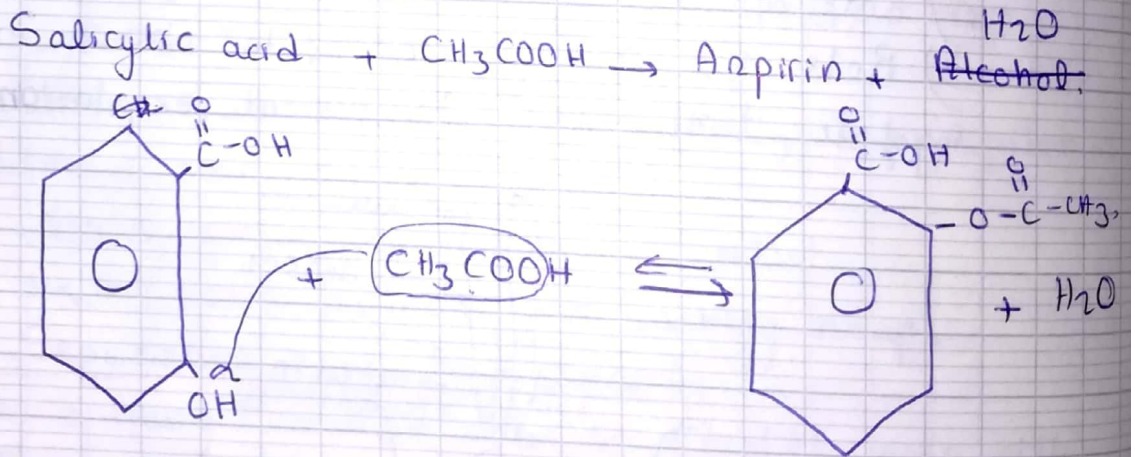 Salicylic acid + CH3COOH → Aspirin + Alcohol. H2O
O
||
C-OH
OH
+ CH3COOH ⇌
O
||
C-OH
O
||
-O-C-CH3,
+ H2O